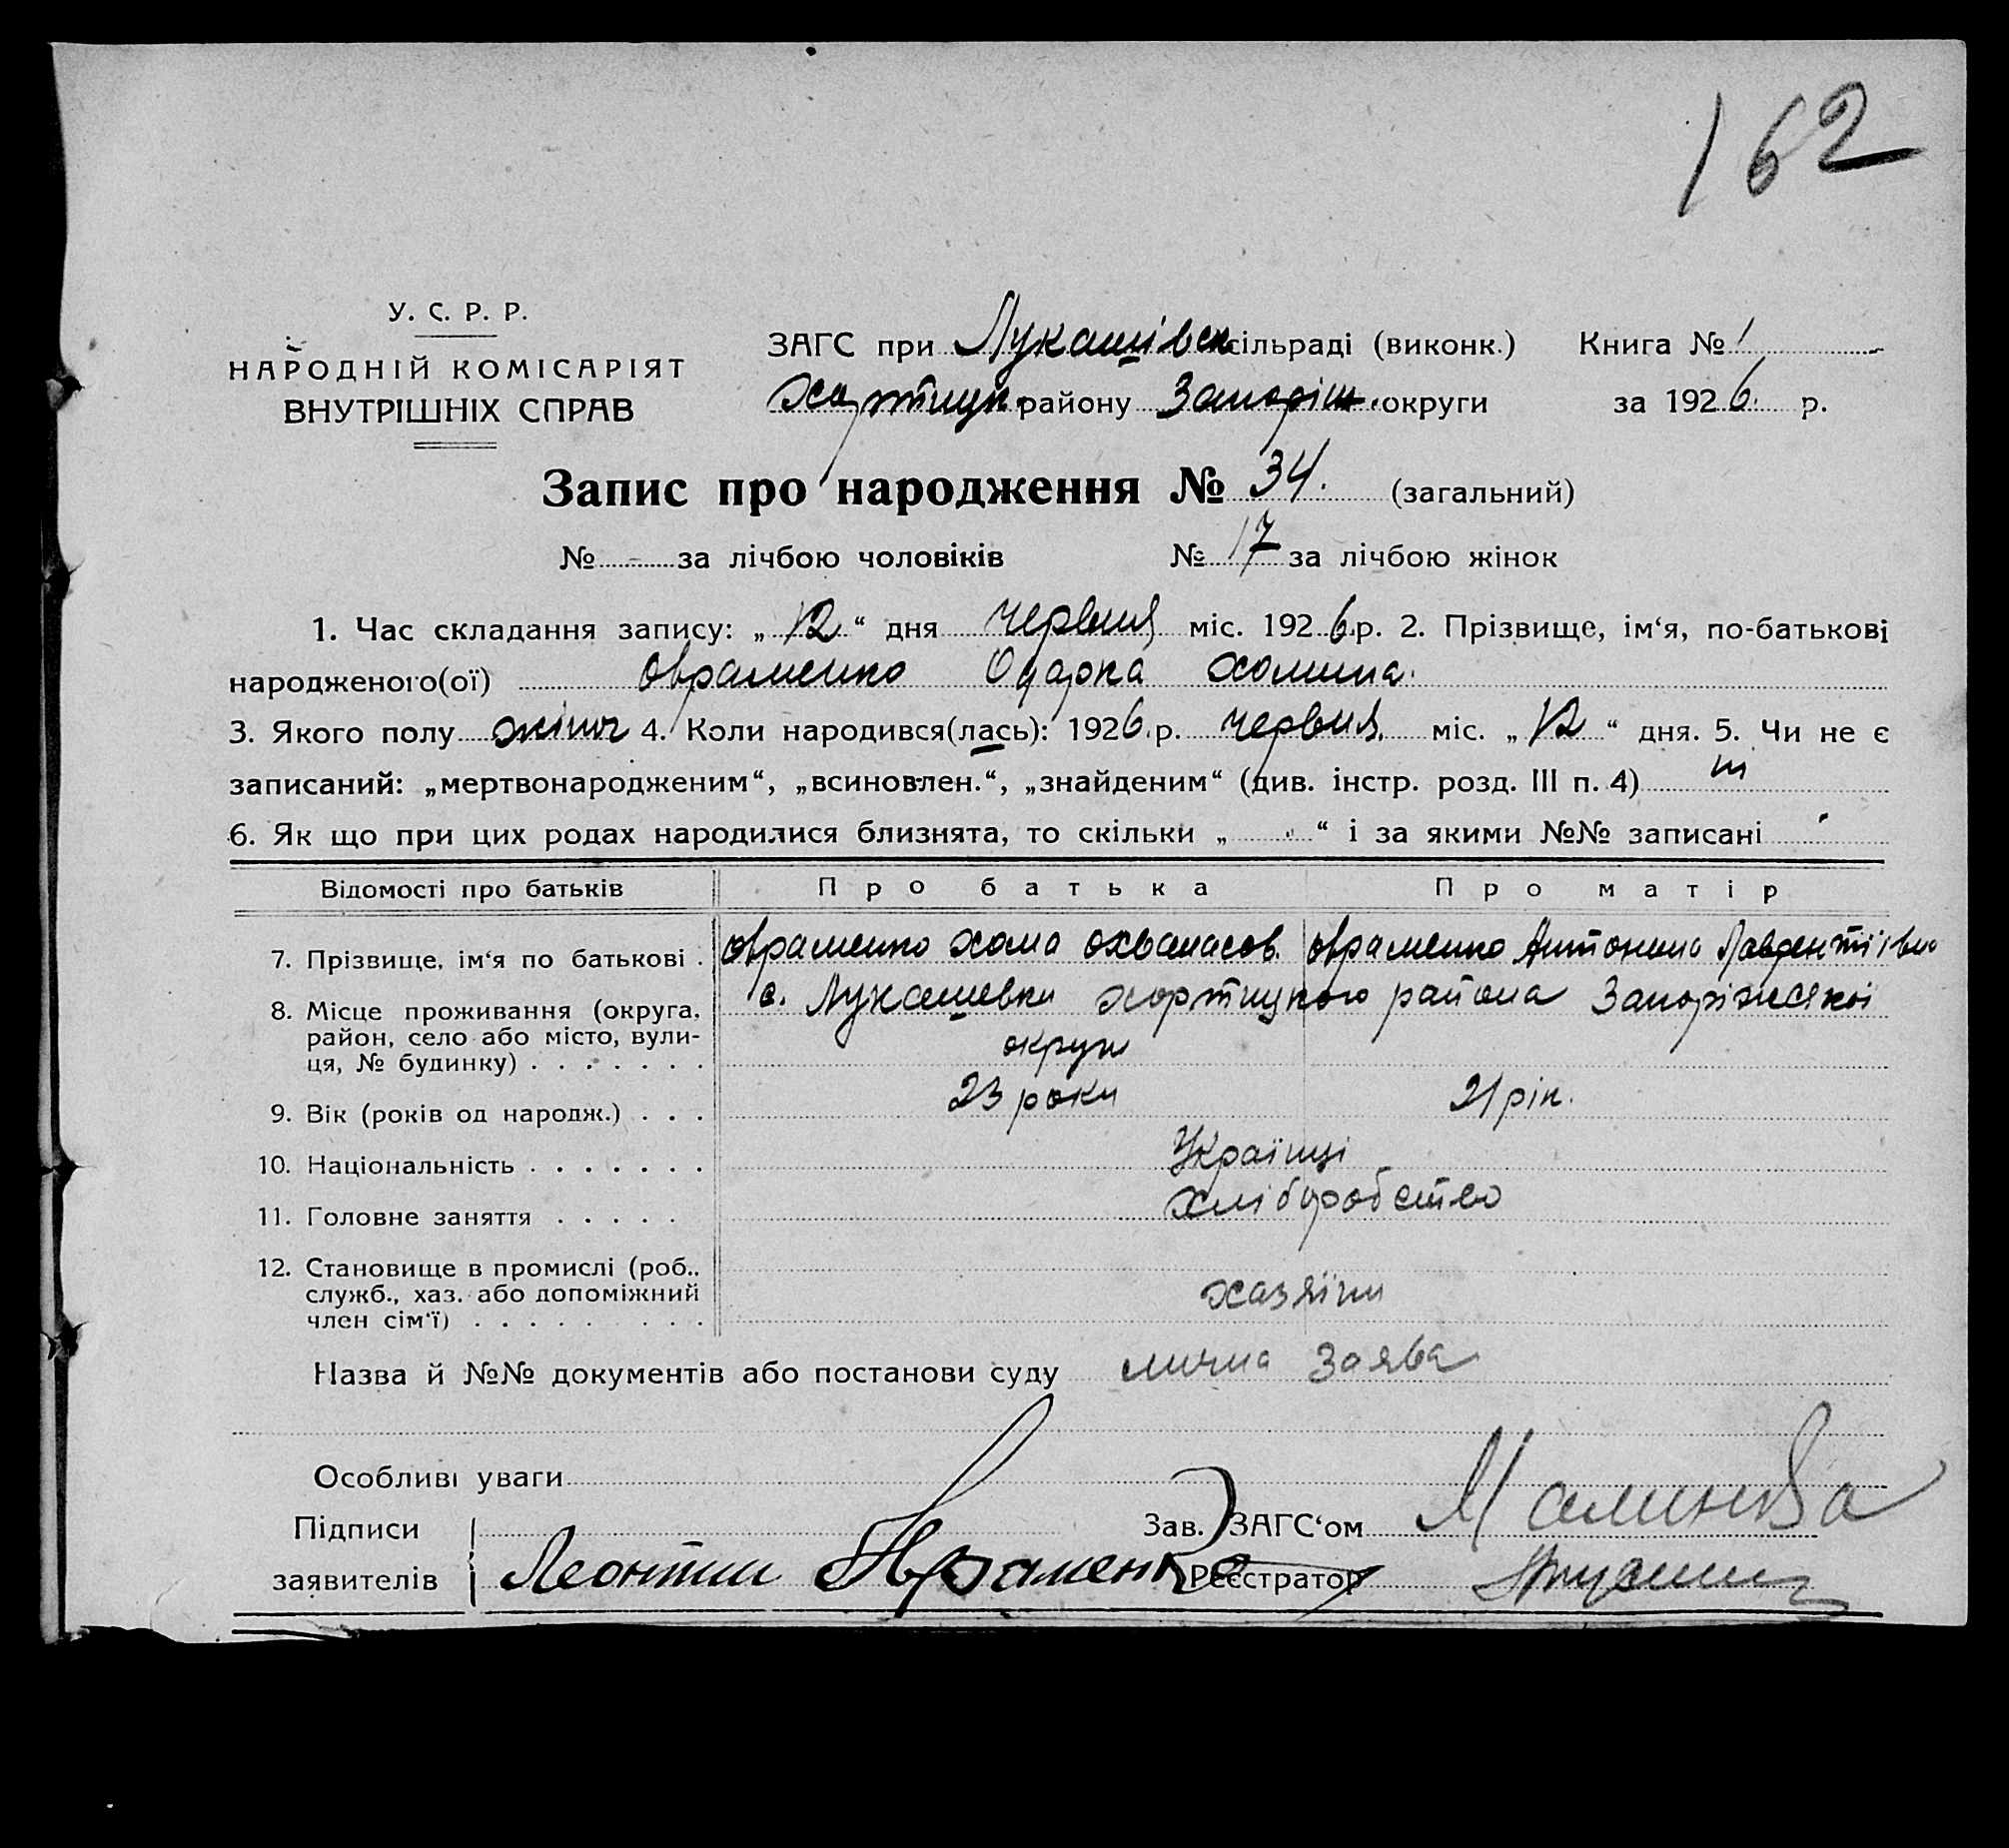 162
У. С. Р. Р.
НАРОДНІЙ КОМІСАРІЯТ
ВНУТРІШНІХ СПРАВ
ЗАГС при Лукашівск сільраді (виконк.) Книга № 1
Хортицьк. району Запоріш. округи за 1926. р.
Запис про народження № 34. (загальний)
№ - за лічбою чоловіків № 17 за лічбою жінок
1. Час складання запису: „12“ дня червня міс. 1926.р. 2. Прізвище, ім‘я, по-батькові
народженого(ої) Овраменко Одарка Хомина.
3. Якого полу жіноч 4. Коли народився(лась): 1926.р. червня. міс. „12“ дня. 5. Чи не є
записаний: „мертвонародженим“, „всиновлен.“, „знайденим“ (див. інстр. розд. III п. 4)
6. Як що при цих родах народилися близнята, то скільки „ “ і за якими №№ записані
Відомості про батьків Про батька Про матір
7. Прізвище, ім‘я по батькові . Овраменко Хома Охванасов. Овраменко Антонина Лаврентіівна
8. Місце проживання (округа, район, село або місто, вули-ця, № будинку) . . . . . . . с. Лукашевки Хортицкого района Запоріжськоі
округи
9. Вік (років од народж.) . . . 23 роки 21 рік.
10. Національність . . . . . . . Українці
11. Головне заняття . . . . . Хліборобство
12. Становище в промислі (роб.,
служб., хаз. або допоміжний
член сім‘ї) . . . . . . . . . хазяїни
Назва й №№ документів або постанови суду лична заява
Особливі уваги
Підписи Зав. ЗАГС‘ом
заявителів Леонтии Авраменко Реєстратор